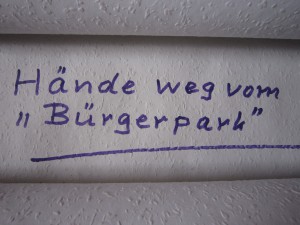 Hände weg vom
„Bürgerpark”